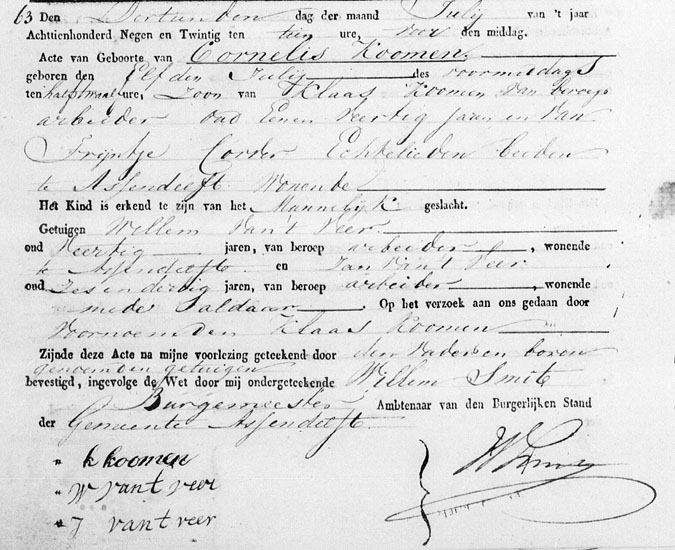 63 Den Dertienden dag der maand Julij van 't jaar
Achttienhonderd Negen en Twintig ten tien ure, voor den middag.
Acte van Geboorte van Cornelis Koomen
geboren den Elfden Julij des voormiddags
ten half twaalf ure, Zoon van Klaas Koomen van beroep
arbeider oud Eenen Veertig jaaren en van
Trijntje Correr Echtelieden beiden
te Assendelft Wonende
Het Kind is erkend te zijn van het Mannelijk geslacht.
Getuigen Willem Van't Veer
oud Veertig jaren, van beroep arbeider, wonende
te Assendelft en Jan Van't Veer
oud Zesendertig jaren, van beroep arbeider, wonende
mede Op het verzoek aan ons gedaan door
voornoemden Klaas Koomen
Zijnde deze Acte na mijne voorlezing geteekend door den Vader en boven
genoemden getuigen
bevestigd, ingevolge de Wet door mij ondergeteekende Willem Smit
Burgemeester Ambtenaar van den Burgerlijken Stand
der Gemeente Assendelft.
" k koomen
" W vant veer
" J vant veer